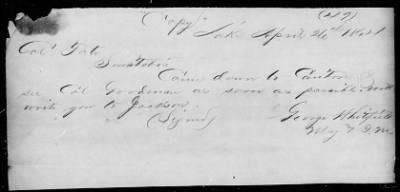 Copy (29)
April 26th 1864
Col Tate
Come down to Canton &
see Col Goodman as soon as possible
write you to Jackson.
(Signed) George Whitfield
Maj & Q.M.